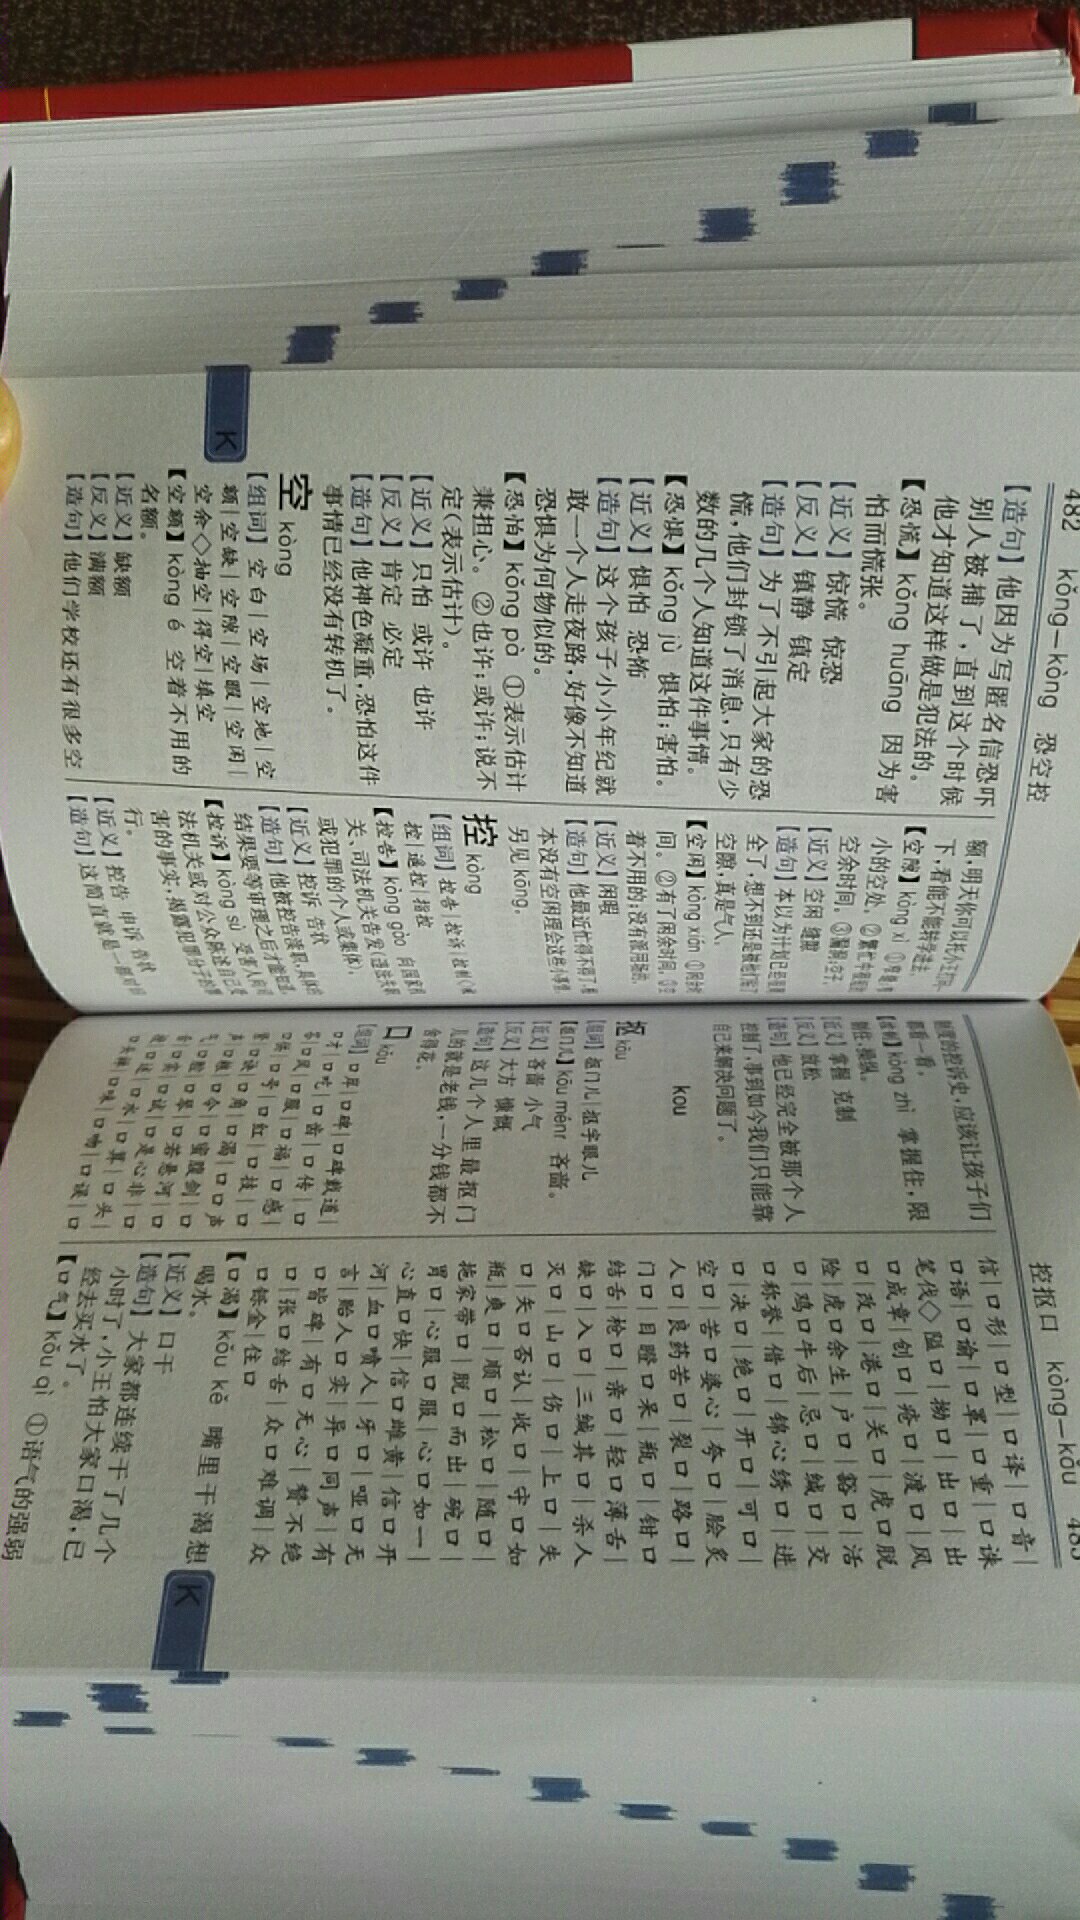 482 kǒng—kòng 恐空控
【造句】他因为写匿名信恐吓
别人被捕了，直到这个时候
他才知道这样做是犯法的。
【恐慌】kǒng huāng 因为害
怕而慌张。
【近义】惊慌 惊恐
【反义】镇静 镇定
【造句】为了不引起大家的恐
慌，他们封锁了消息，只有少
数的几个人知道这件事情。
【恐惧】kǒng jù 惧怕；害怕。
【近义】惧怕 恐怖
【造句】这个孩子小小年纪就
敢一个人走夜路，好像不知道
恐惧为何物似的。
【恐怕】kǒng pà ①表示估计
兼担心。②也许；或许；说不
定（表示估计）。
【近义】只怕 或许 也许
【反义】肯定 必定
【造句】他神色凝重，恐怕这件
事情已经没有转机了。
空 kòng
【组词】空白|空场|空地|空
额|空缺|空隙|空暇|空闲|
空余◇抽空|得空|填空
【空额】kòng é 空着不用的
名额。
【近义】缺额
【反义】满额
【造句】他们学校还有很多空
额，明天你可以托小王打听一
下，看能不能转学进去。
【空隙】kòng xì
小的空处。
空余时间。
【近义】空闲 缝隙
【造句】本以为计划已经很周
全了，想不到还是被他们钻了
空隙，真是气人。
【空闲】kòng xián
间。②有了闲余时间。③空
着不用的；没有派用场的。
【近义】闲暇
【造句】他最近忙得不得了，根
本没有空闲理会这些小事情。
另见 kōng。
控 kòng
【组词】控告|控诉|控制◇
控|遥控|指控
【控告】kòng gào 向国家机
关、司法机关告发（违法失职
或犯罪的个人或集体）。
【近义】控诉 告状
【造句】他被控告渎职，具体的
结果要等审理之后才能知道。
【控诉】kòng sù 受害人向司
法机关或对公众陈述自己受
害的事实，揭露犯罪分子的罪
行。
【近义】控告 申诉 告状
【造句】这简直就是一部对旧
控抠口 kòng—kǒu 483
制度的控诉史，应该让孩子们
都看一看。
【控制】kòng zhì 掌握住，限
制住；操纵。
【近义】掌握 克制
【反义】放松
【造句】他已经完全被那个人
控制了，事到如今我们只能靠
自己来解决问题了。
kou
抠 kōu
【组词】抠门儿|抠字眼儿
【抠门儿】kōu ménr 吝啬。
【近义】吝啬 小气
【反义】大方 慷慨
【造句】这几个人里最抠门
儿的就是老钱，一分钱都不
舍得花。
口 kǒu
【组词】口岸|口碑|口碑载道|
口才|口吃|口齿|口传|口
风|口服|口福|口感|
口号|口红|口技|口
诀|口角|口渴|口口声
声|口粮|口令|口蜜腹剑|口
气|口腔|口琴|口若悬河|口
哨|口试|口是心非|口
述|口水|口算|口头|
口味|口吻|口误|口
信|口形|口型|口译|口音|
口语|口谕|口罩|口重|口诛
笔伐◇隘口|拗口|出口|出
口成章|创口|疮口|渡口|风
口|改口|港口|关口|虎口脱
险|虎口余生|户口|豁口|活
口|鸡口牛后|忌口|缄口|交
口称誉|借口|锦心绣口|进
口|决口|绝口|开口|可口|
空口|苦口婆心|夸口|脍炙
人口|良药苦口|裂口|路口|
门口|目瞪口呆|瓶口|钳口
结舌|枪口|亲口|轻口薄舌|
缺口|入口|三缄其口|杀人
灭口|山口|伤口|上口|失
口|矢口否认|收口|守口如
瓶|爽口|顺口|松口|随口|
拖家带口|脱口而出|碗口|
胃口|心服口服|心口如一|
心直口快|信口雌黄|信口开
河|血口喷人|牙口|哑口无
言|贻人口实|异口同声|有
口皆碑|有口无心|赞不绝
口|张口结舌|众口难调|众
口铄金|住口
【口渴】kǒu kě 嘴里干渴想
喝水。
【近义】口干
【造句】大家都连续干了几个
小时了，小王怕大家口渴，已
经去买水了。
【口气】kǒu qì ①语气的强弱
K
K